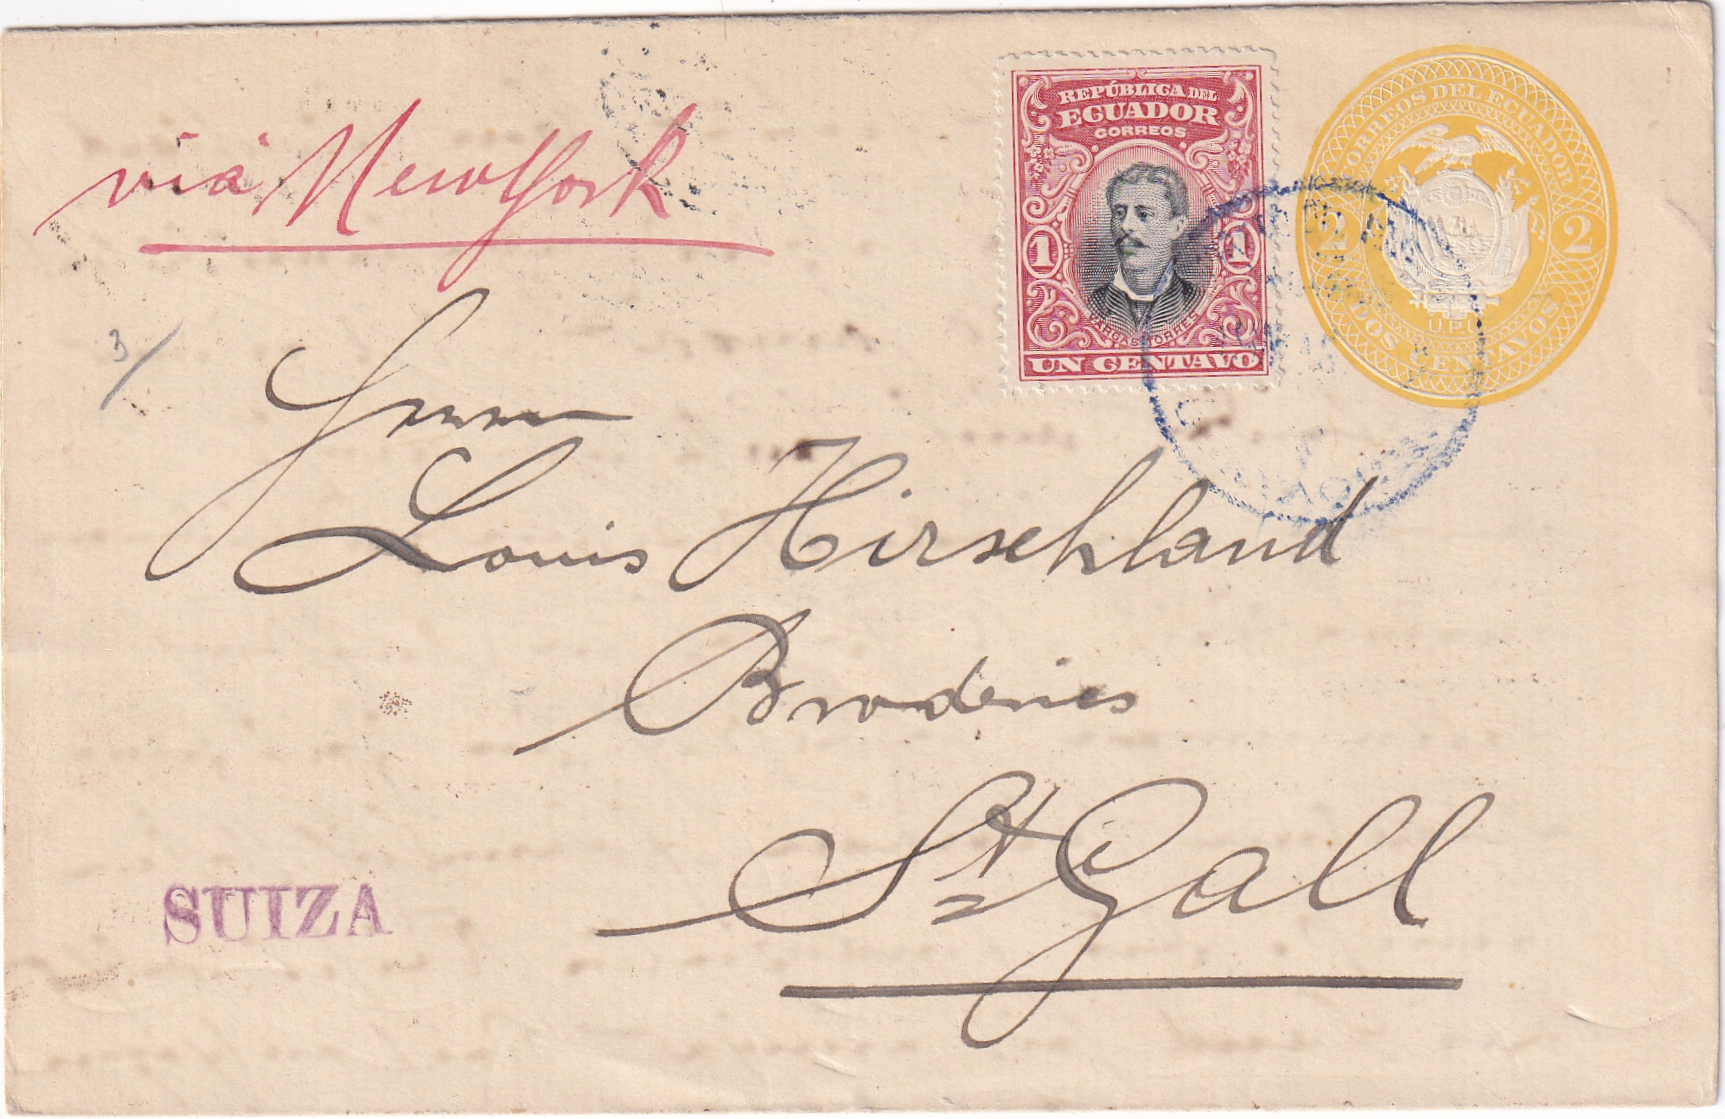 viá New York
REPÚBLICA DEL
ECUADOR
CORREOS
1 1
VARGAS TORRES
UN CENTAVO
CORREOS DEL ECUADOR
2 2
U.P.U.
DOS CENTAVOS
3/
Herrn
Louis Hirschland
Broderies
St Gall
SUIZA